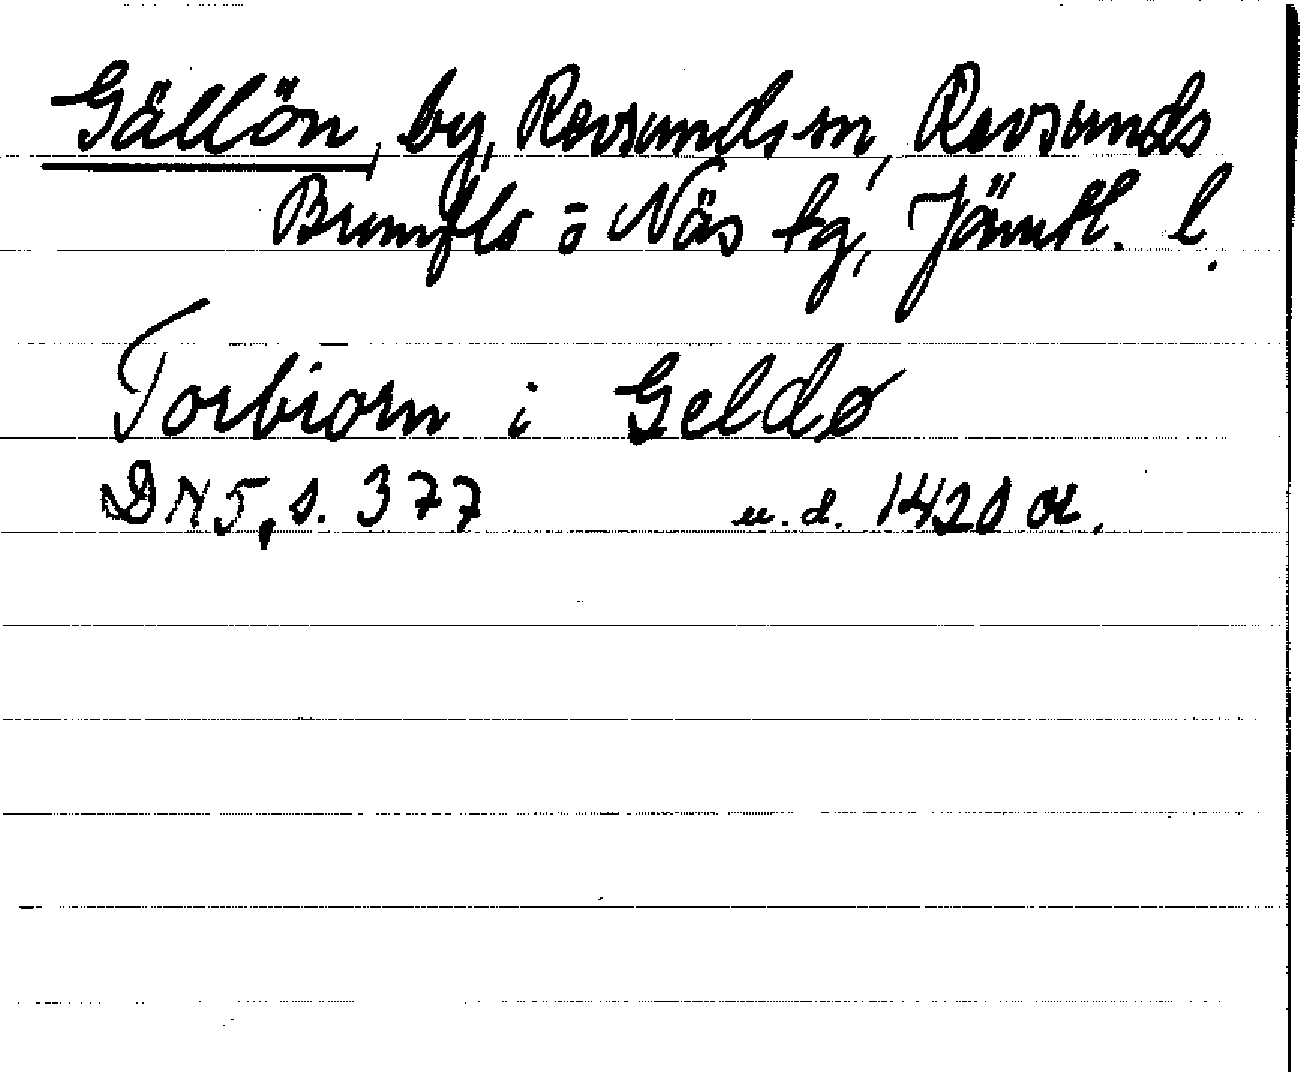 Gällön, by, Revsunds sn, Revsunds
Brunflo o Näs tg, Jämtl. l.
Torbiorn i Geldø
DN 5, s. 377 u.d. 1420 or.